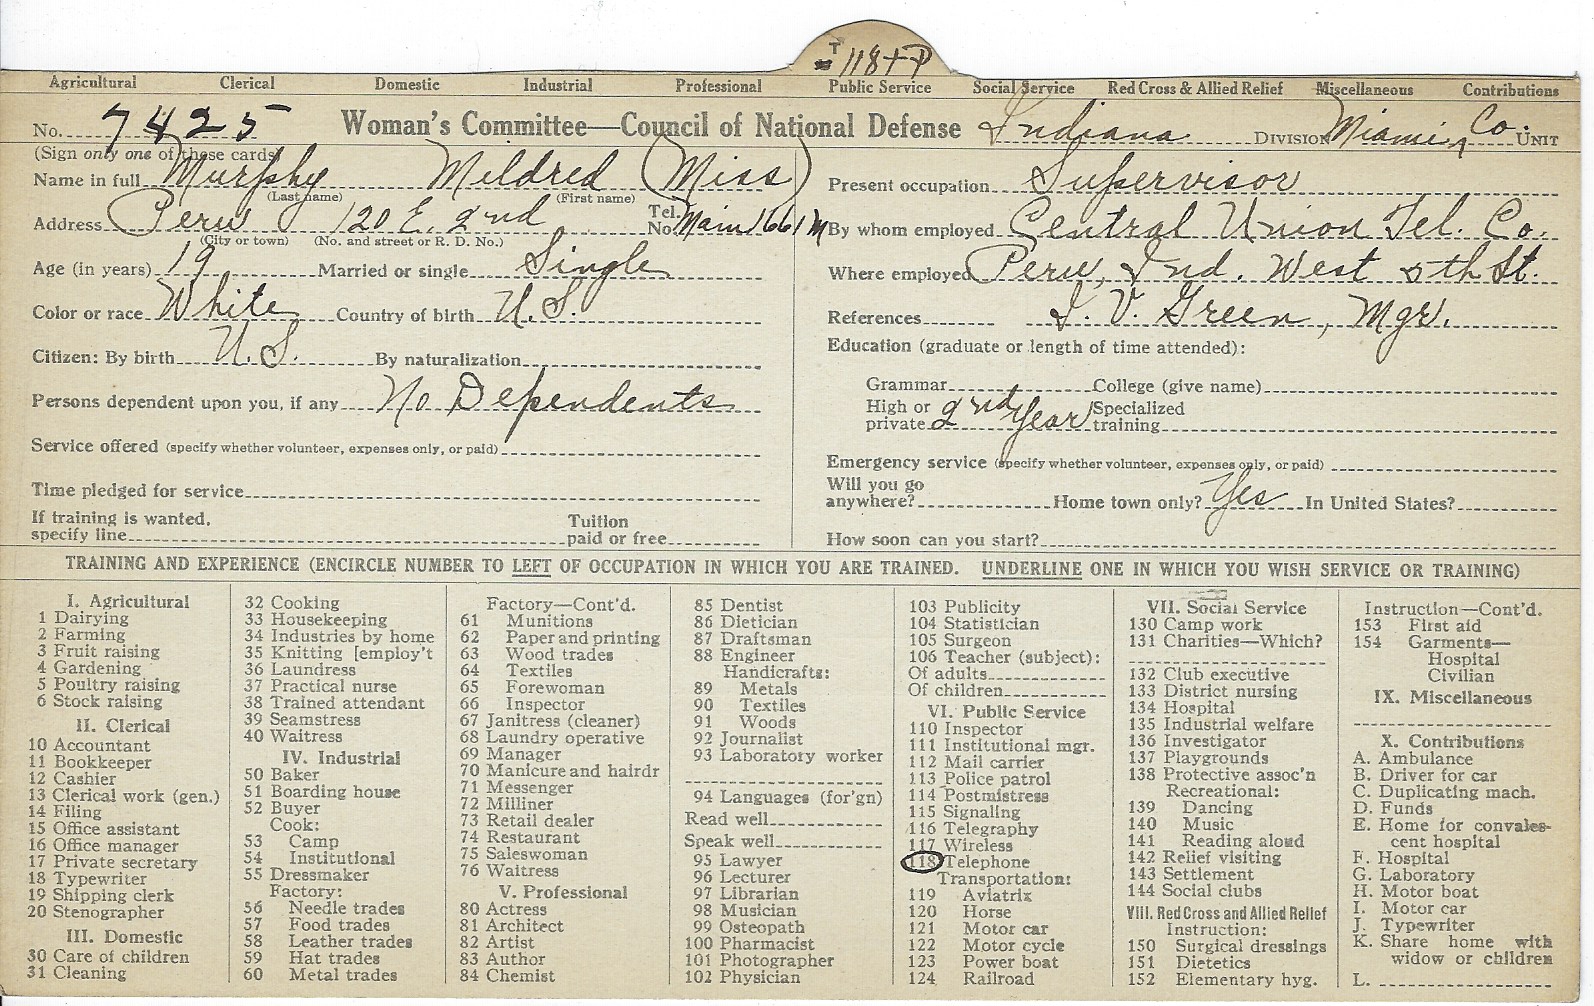 T
118+P
Agricultural Clerical Domestic Industrial Professional Public Service Social Service Red Cross & Allied Relief Miscellaneous Contributions
No. 7425 Woman's Committee—Council of National Defense Indiana DIVISION Miami Co. UNIT
(Sign only one of these cards)
Name in full Murphy Mildred (Miss)
(Last name) (First name)
Address Peru 120 E. 2nd Tel. No. Main 1661 M
(City or town) (No. and street or R. D. No.)
Age (in years) 19 Married or single Single
Color or race White Country of birth U. S.
Citizen: By birth U. S. By naturalization
Persons dependent upon you, if any No Dependents
Service offered (specify whether volunteer, expenses only, or paid)
Time pledged for service
If training is wanted, specify line Tuition paid or free
Present occupation Supervisor
By whom employed Central Union Tel. Co.
Where employed Peru, Ind. West 5th St.
References I. V. Green, Mgr.
Education (graduate or length of time attended):
Grammar College (give name)
High or private 2nd Year Specialized training
Emergency service (specify whether volunteer, expenses only, or paid)
Will you go anywhere? Home town only? Yes In United States?
How soon can you start?
TRAINING AND EXPERIENCE (ENCIRCLE NUMBER TO LEFT OF OCCUPATION IN WHICH YOU ARE TRAINED. UNDERLINE ONE IN WHICH YOU WISH SERVICE OR TRAINING)
I. Agricultural
1 Dairying
2 Farming
3 Fruit raising
4 Gardening
5 Poultry raising
6 Stock raising
II. Clerical
10 Accountant
11 Bookkeeper
12 Cashier
13 Clerical work (gen.)
14 Filing
15 Office assistant
16 Office manager
17 Private secretary
18 Typewriter
19 Shipping clerk
20 Stenographer
III. Domestic
30 Care of children
31 Cleaning
32 Cooking
33 Housekeeping
34 Industries by home
35 Knitting [employ't
36 Laundress
37 Practical nurse
38 Trained attendant
39 Seamstress
40 Waitress
IV. Industrial
50 Baker
51 Boarding house
52 Buyer
Cook:
53 Camp
54 Institutional
55 Dressmaker
Factory:
56 Needle trades
57 Food trades
58 Leather trades
59 Hat trades
60 Metal trades
Factory—Cont'd.
61 Munitions
62 Paper and printing
63 Wood trades
64 Textiles
65 Forewoman
66 Inspector
67 Janitress (cleaner)
68 Laundry operative
69 Manager
70 Manicure and hairdr
71 Messenger
72 Milliner
73 Retail dealer
74 Restaurant
75 Saleswoman
76 Waitress
V. Professional
80 Actress
81 Architect
82 Artist
83 Author
84 Chemist
85 Dentist
86 Dietician
87 Draftsman
88 Engineer
Handicrafts:
89 Metals
90 Textiles
91 Woods
92 Journalist
93 Laboratory worker
94 Languages (for'gn)
Read well
Speak well
95 Lawyer
96 Lecturer
97 Librarian
98 Musician
99 Osteopath
100 Pharmacist
101 Photographer
102 Physician
103 Publicity
104 Statistician
105 Surgeon
106 Teacher (subject):
Of adults
Of children
VI. Public Service
110 Inspector
111 Institutional mgr.
112 Mail carrier
113 Police patrol
114 Postmistress
115 Signaling
116 Telegraphy
117 Wireless
118 Telephone
Transportation:
119 Aviatrix
120 Horse
121 Motor car
122 Motor cycle
123 Power boat
124 Railroad
VII. Social Service
130 Camp work
131 Charities—Which?
132 Club executive
133 District nursing
134 Hospital
135 Industrial welfare
136 Investigator
137 Playgrounds
138 Protective assoc'n
Recreational:
139 Dancing
140 Music
141 Reading aloud
142 Relief visiting
143 Settlement
144 Social clubs
VIII. Red Cross and Allied Relief
Instruction:
150 Surgical dressings
151 Dietetics
152 Elementary hyg.
Instruction—Cont'd.
153 First aid
154 Garments—
Hospital
Civilian
IX. Miscellaneous
X. Contributions
A. Ambulance
B. Driver for car
C. Duplicating mach.
D. Funds
E. Home for convales-
cent hospital
F. Hospital
G. Laboratory
H. Motor boat
I. Motor car
J. Typewriter
K. Share home with
widow or children
L.